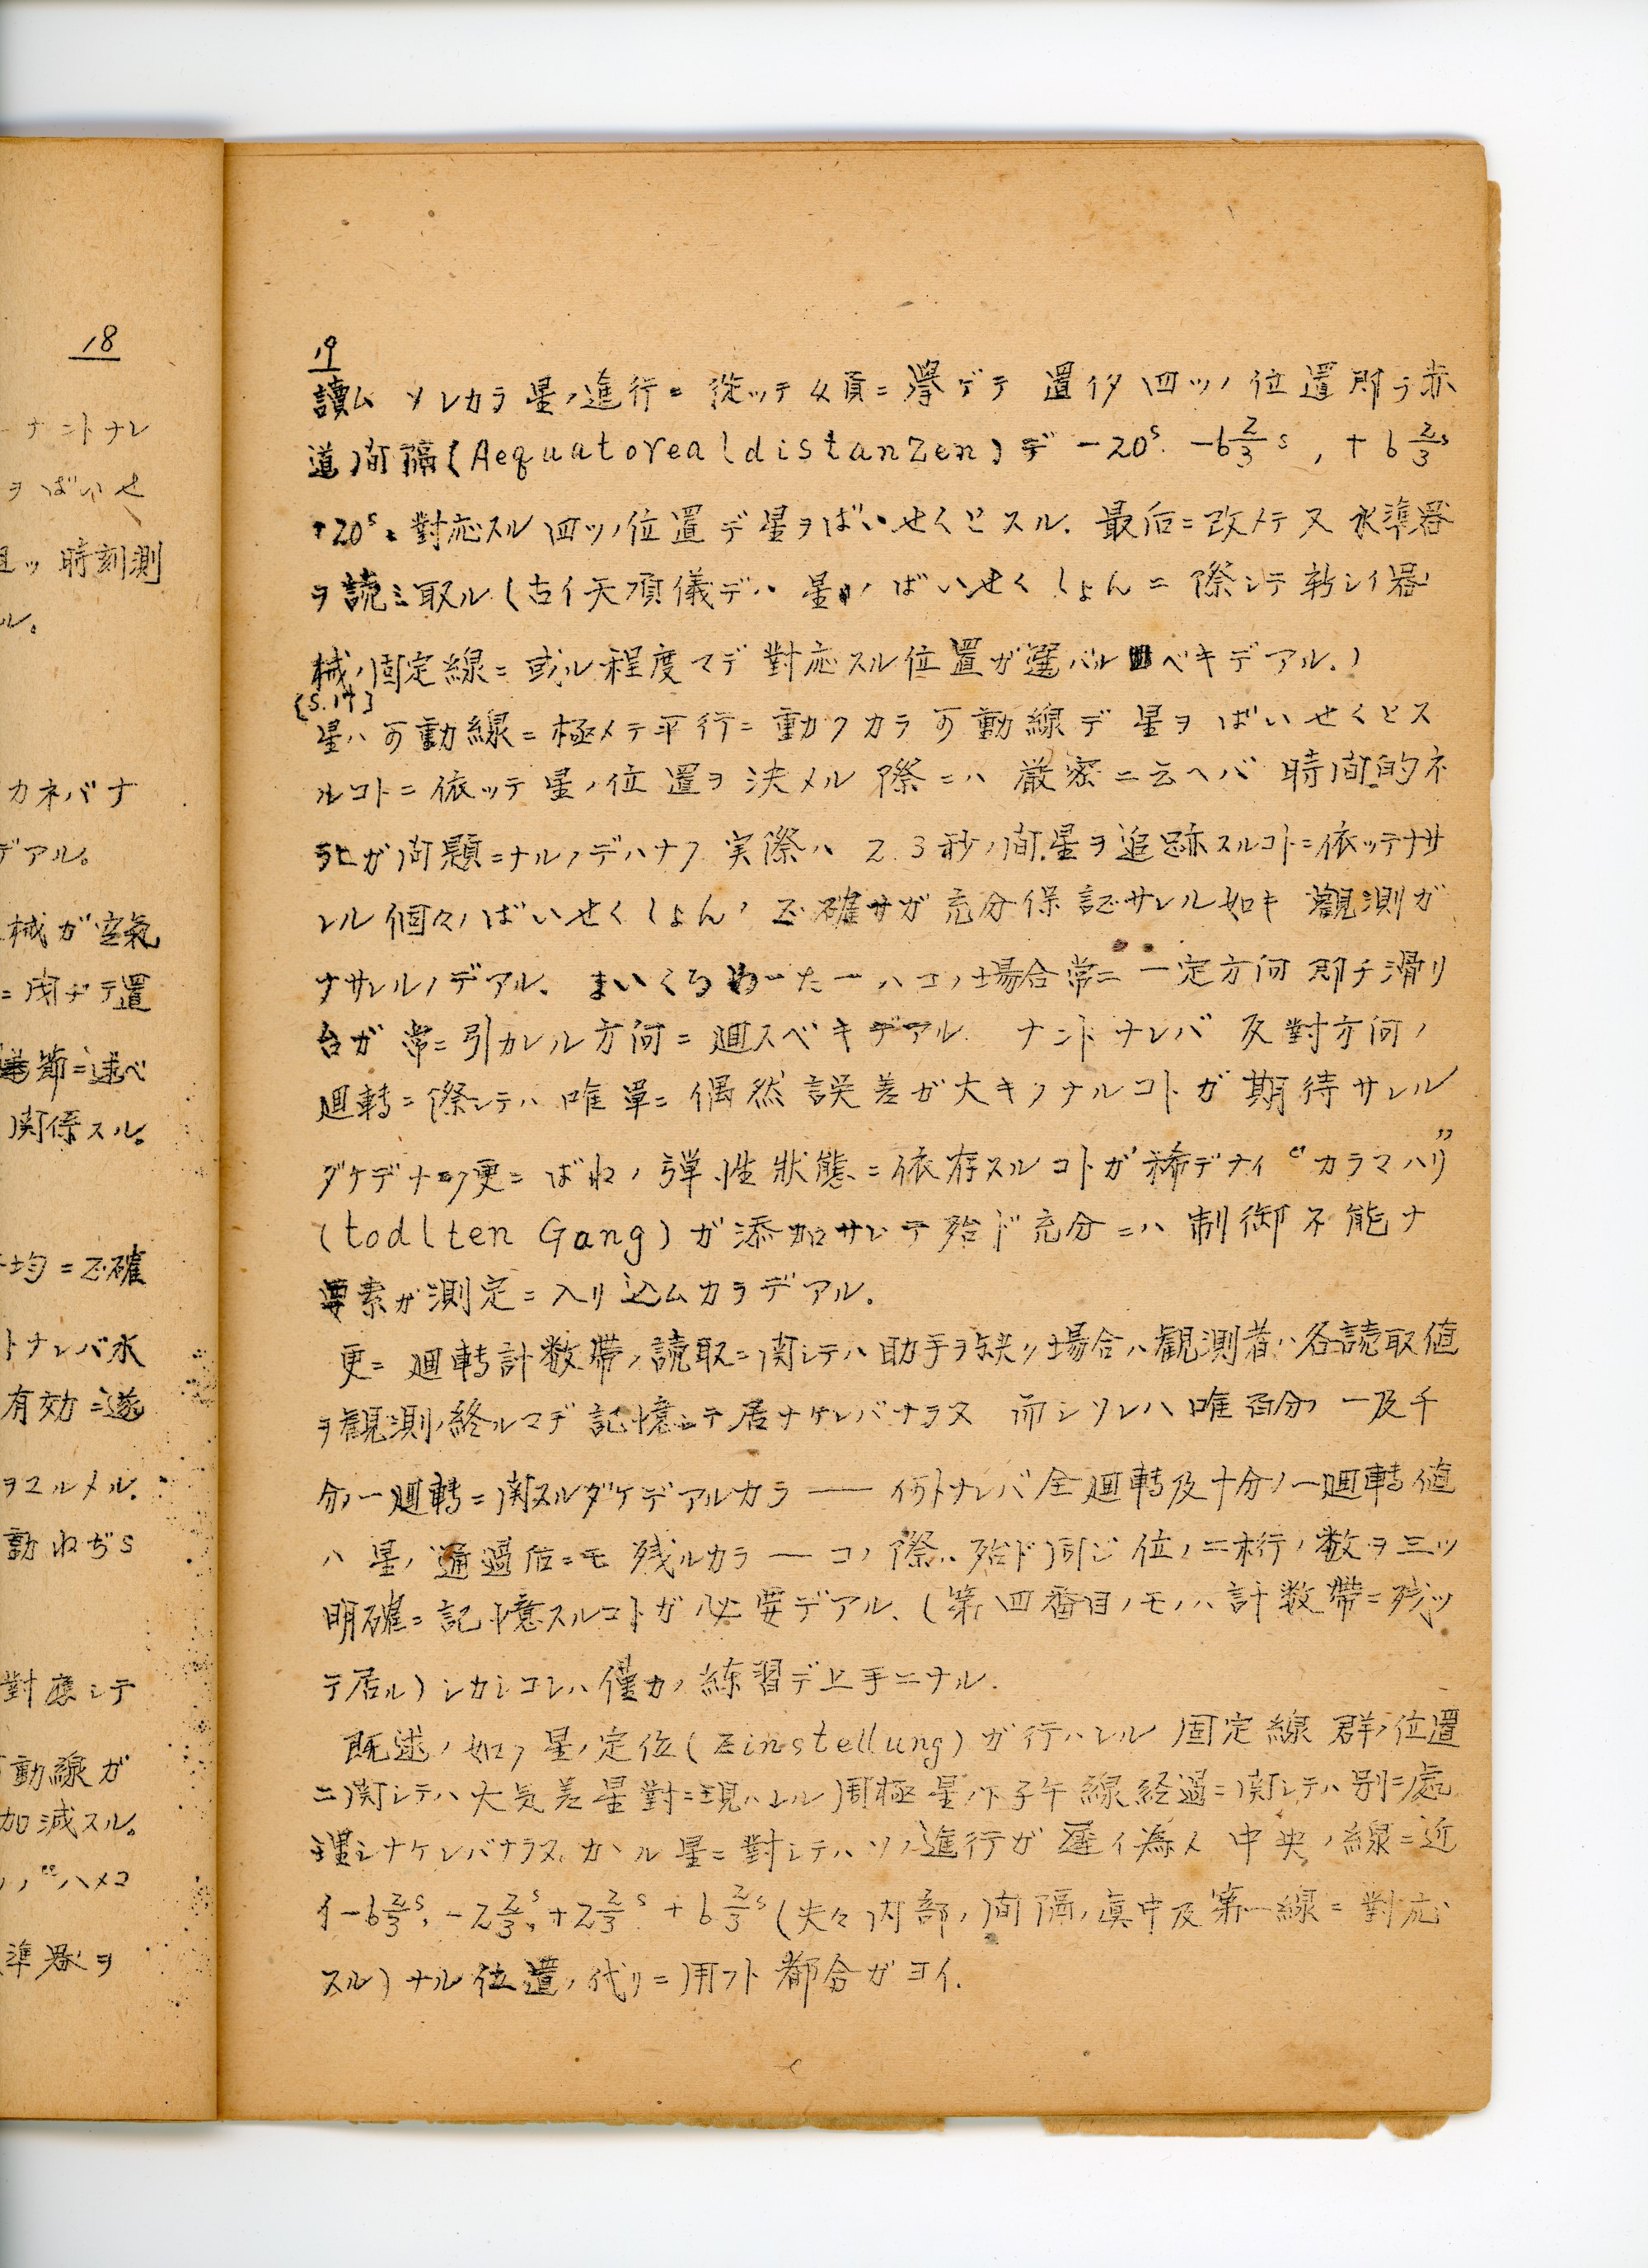 18
ナントナレ
ヲばいせ
時刻測
ル。
カネバナ
デアル。
械ガ空氣
ニ閉ヂテ置
節ニ述ベ
関係スル。
均ニ正確
トナレバ水
有効ニ遂
ヲユルメル.
動ねぢs
對應シテ
動線ガ
加減スル。
準器ヲ
19
讀ム ソレカラ星ノ進行ニ從ッテ 4頁ニ擧ゲテ 置イタ 四ツノ位置 即チ赤
道間隔(Aequatorealdistanzen)デ −20s. −6 2/3 s , +6 2/3 s
+20sニ 對応スル 四ツノ位置デ星ヲばいせくとスル. 最后ニ改メテ又水準器
ヲ読ミ取ル(古イ天頂儀デハ 星ノばいせくしょんニ際シテ新シイ器
械ノ固定線ニ或ル程度マデ對応スル位置ガ選バルベキデアル.)
[S.14]
星ハ可動線ニ極メテ平行ニ動クカラ可動線デ星ヲばいせくとス
ルコトニ依ッテ星ノ位置ヲ決メル際ニハ厳密ニ云ヘバ 時間的ネ
ラヒガ問題ニナルノデハナク 実際ハ 2.3秒ノ間星ヲ追跡スルコトニ依ッテナサ
レル個々ノばいせくしょんノ正確サガ充分保証サレル如キ 観測ガ
ナサレルノデアル. まいくろめーたーハコノ場合常ニ一定方向 即チ滑リ
台ガ常ニ引カレル方向ニ廻スベキデアル. ナントナレバ 反對方向ノ
廻轉ニ際シテハ唯單ニ偶然誤差ガ大キクナルコトガ期待サレル
ダケデナク更ニばねノ弾性狀態ニ依存スルコトガ稀デナイ“カラマハリ”
(todlten Gang)ガ添加サレテ殆ド充分ニハ制御不能ナ
要素ガ測定ニ入リ込ムカラデアル。
更ニ廻轉計数帶ノ読取ニ関シテハ助手ヲ欠ク場合ハ観測者ハ各読取値
ヲ観測ノ終ルマデ記憶シテ居ナケレバナラヌ 而シソレハ唯百分ノ一及千
分ノ一廻轉ニ関スルダケデアルカラ ── 何トナレバ全廻轉及十分ノ一廻轉値
ハ星ノ通過后ニモ残ルカラ ── コノ際ハ殆ド同ジ位ノ二桁ノ数ヲ三ツ
明確ニ記憶スルコトガ必要デアル. (第四番目ノモノハ計数帶ニ残ッ
テ居ル)シカシコレハ僅カノ練習デ上手ニナル.
既述ノ如ク星ノ定位(Einstellung)ガ行ハレル 固定線群ノ位置
ニ関シテハ大気差星對ニ現ハレル周極星ノ下子午線経過ニ関シテハ別ニ處
理シナケレバナラヌ. カヽル星ニ對シテハソノ進行ガ遅イ為メ中央ノ線ニ近
イ−6 2/3 s, −2 2/3 s, +2 2/3 s +6 2/3 s (夫々内部ノ間隔ノ眞中及第一線ニ對応
スル)ナル位置ノ代リニ用フト都合ガヨイ.